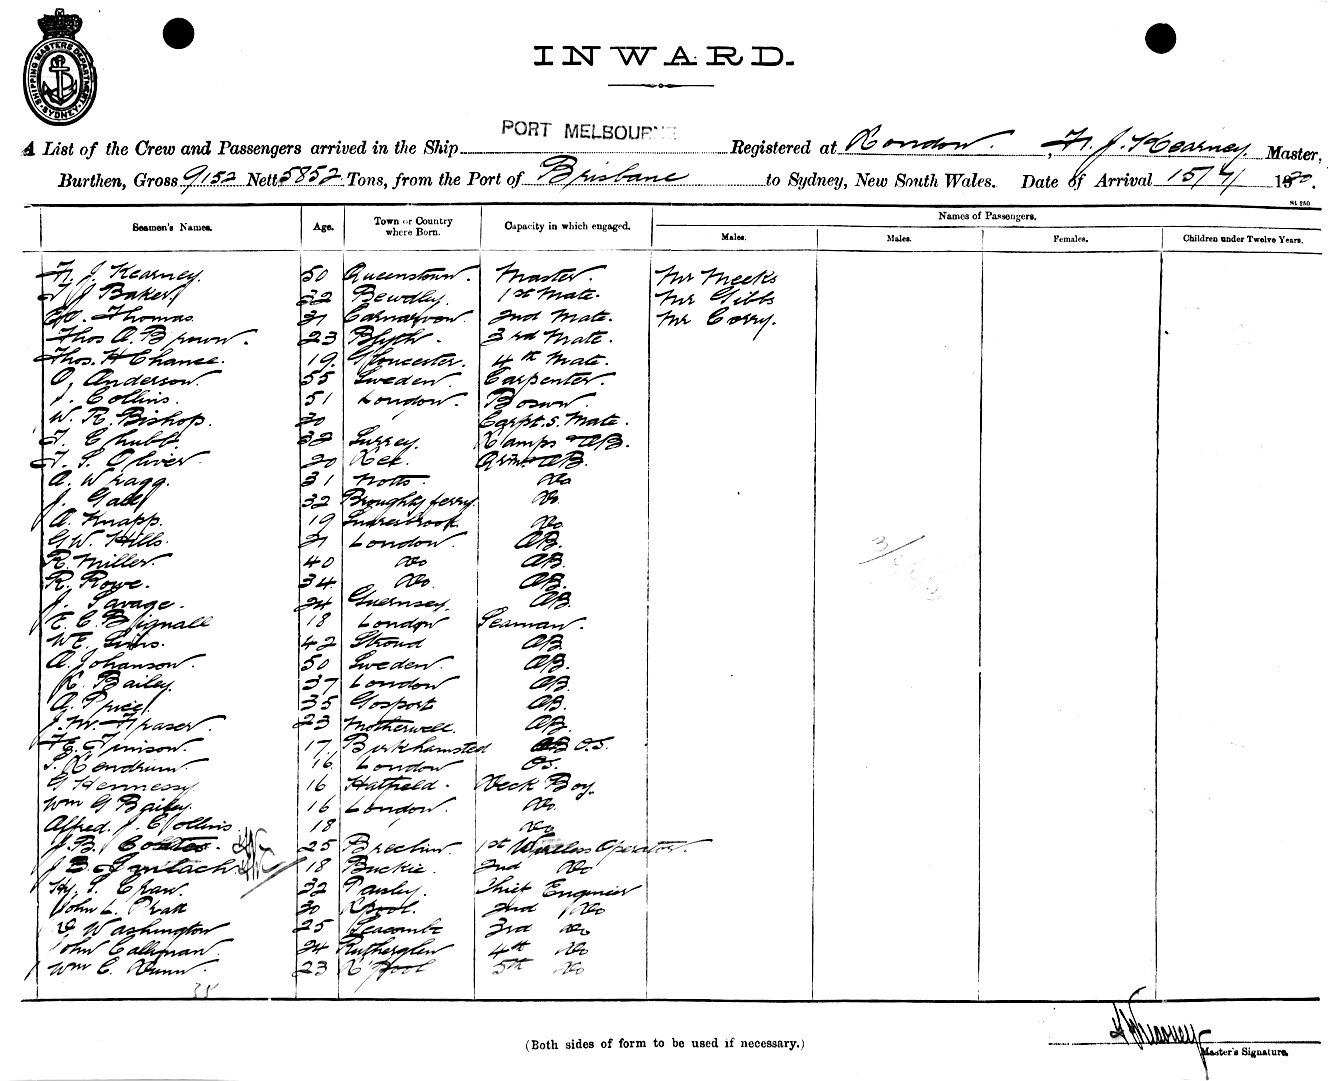 SHIPPING MASTERS DEPARTMENT SYDNEY
INWARD.
PORT MELBOURNE
A List of the Crew and Passengers arrived in the Ship Registered at London. J. Kearney. Master,
Burthen, Gross 9152 Nett 5852 Tons, from the Port of Brisbane to Sydney, New South Wales. Date of Arrival 15/4/ 1920.
Seamen's Names. Age. Town or Country where Born. Capacity in which engaged. Names of Passengers.
Males. Males. Females. Children under Twelve Years.
J. Kearney. 50 Queenstown. Master. Mr Meeks
J Baker 32 Bewdley. 1st Mate. Mr Gibbs
Thomas. 31 Carnarvon. 2nd Mate. Mr Corry.
Thos A. Brown. 23 Blyth. 3rd Mate.
Thos. H Chance. 19. Gloucester. 4th Mate.
Anderson. 55 Sweden. Carpenter.
Collins. 51 London. Bosun.
W. R. Bishop. 30 Carpt.s. Mate.
Chubb. 32 Surrey. Lamps & AB.
Oliver. 20 AB.
A. Wragg. 31 Notts. Do
J. 32 Broughty ferry. Do.
A. Knapp. 19 Do
G W. Hills. 21 London. AB.
R. Miller. 40 Do AB.
R. Rowe. 34. Do. AB.
J. Savage. 24 Guernsey. AB.
E. C. Bignall 18 London Seaman.
WE. Sims. 42 Stroud AB.
A. Johanson. 50 Sweden. AB.
Bailey. 37 London AB.
Price. 35 Gosport AB.
J. M. Fraser. 23 Motherwell. AB.
Jinison. 17. Birkhamsted O.S.
Kendrum. 16 London OS.
G Hennessy 16 Hatfield. Deck Boy.
Wm G Bailey. 16 London. Do.
Alfred. J. Collins 18 Do
J. B. Coates. 25 Brechin. 1st Wireless Operator.
J Garlach. 18 Buckie. 2nd Do
Hy. S. Craw. 32 Paisley. Chief Engineer
John L. Pratt 30 L'pool. 2nd Do
Washington 25 Seacombe 3rd Do
John Calleman. 24 Rutherglen 4th Do
Wm C. Dunn. 23 L'pool 5th Do
35
(Both sides of form to be used if necessary.)
Kearney
Master's Signature.